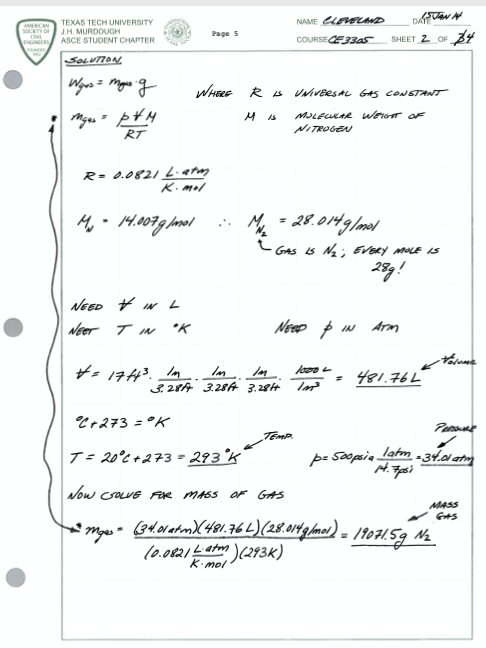 AMERICAN SOCIETY OF CIVIL ENGINEERS
FOUNDED 1852
TEXAS TECH UNIVERSITY
J.H. MURDOUGH
ASCE STUDENT CHAPTER
Page 5
NAME CLEVELAND DATE 15 JAN 14
COURSE CE 3305 SHEET 2 OF 4
SOLUTION
W_gas = m_gas · g
WHERE R IS UNIVERSAL GAS CONSTANT
M IS MOLECULAR WEIGHT OF NITROGEN
* m_gas = pVM / RT
R = 0.0821 L·atm / K·mol
M_N = 14.007 g/mol ∴ M_N2 = 28.014 g/mol
GAS IS N2; EVERY MOLE IS
28g!
NEED V IN L
NEET T IN °K NEED p IN ATM
V = 17 ft³ · 1m/3.28ft · 1m/3.28ft · 1m/3.28ft · 1000 L/1m³ = 481.76 L Volume
°C + 273 = °K
T = 20°C + 273 = 293 °K TEMP.
p = 500 psia 1atm/14.7psi = 34.01 atm PRESSURE
NOW CSOLVE FOR MASS OF GAS
* m_gas = (34.01 atm)(481.76 L)(28.014 g/mol) / (0.0821 L·atm/K·mol)(293K) = 19071.5 g N2 MASS GAS